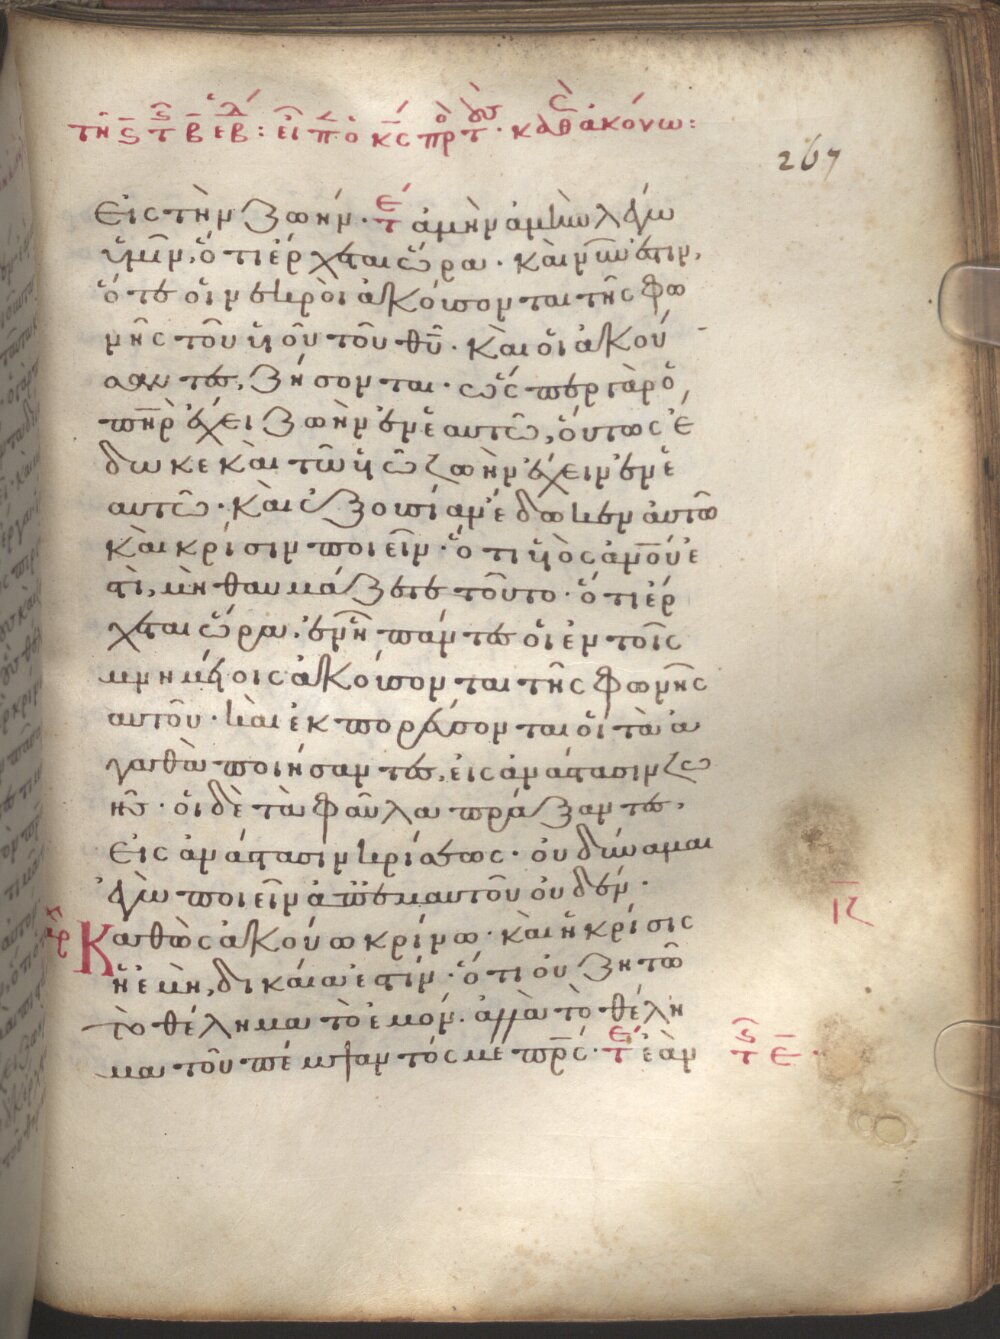 τῆ ς τ β εβ: εἶ π ὁ κς πρ τ. καθ ἀκόνω:
267
εἰς τὴν ζωήν. τε ἀμὴν ἀμὴν λέγω
ὑμῖν, ὅτι ἔρχεται ὥρα. καὶ νῦν ἐστιν,
ὅτε οἱ νεκροὶ ἀκούσονται τῆς φω
νῆς τοῦ υἱοῦ τοῦ θῦ. καὶ οἱ ἀκού
σαντες, ζήσονται. ὥσπερ γὰρ ὁ
πηρ ἔχει ζωὴν ἐν ἑαυτῶ, οὕτως ἔ
δωκε καὶ τῶ υἱῶ ζωὴν ἔχειν ἐν ἑ
αυτῶ. καὶ ἐξουσίαν ἔδωκεν αὐτῶ
καὶ κρίσιν ποιεῖν. ὅτι υἱὸς ἀνοῦ ἐ
στὶ, μὴ θαυμάζετε τοῦτο. ὅτι ἔρ
χεται ὥρα, ἐν ἧ πάντες οἱ ἐν τοῖς
μνημείοις ἀκούσονται τῆς φωνῆς
αυτοῦ. καὶ ἐκπορεύσονται οἱ τὰ ἀ
γαθὰ ποιήσαντες, εἰς ἀνάστασιν ζω
ῆς. οἱ δὲ τὰ φαῦλα πράξαντες,
εἰς ἀνάστασιν κρίσεως. οὐ δύναμαι
ἐγὼ ποιεῖν ἀπ' ἐμαυτοῦ οὐδέν.
ιζ
ἀρ Καθὼς ἀκούω κρίνω. καὶ ἡ κρίσις
ἡ ἐμὴ, δικαία ἐστίν. ὅτι οὐ ζητῶ
τὸ θέλημα τὸ ἐμόν. ἀλλὰ τὸ θέλη
μα τοῦ πέμψαντός με πρς. τε ἐὰν τς ε.